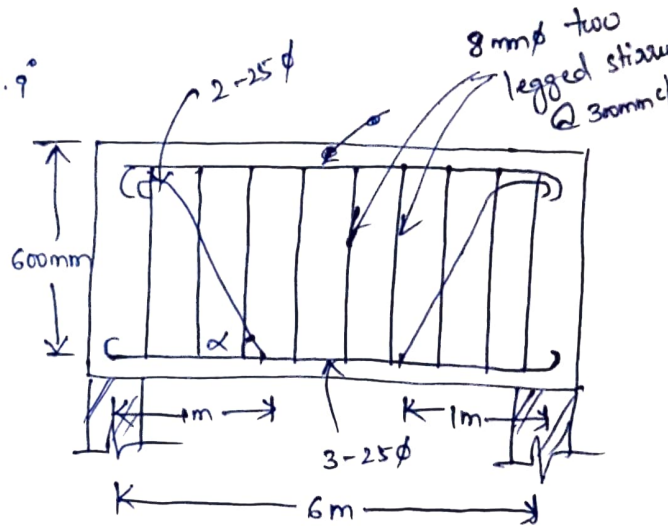 .9°
2-25ϕ
8mmϕ two
legged
@ 300mm
600mm
α
1m
1m
3-25ϕ
6m